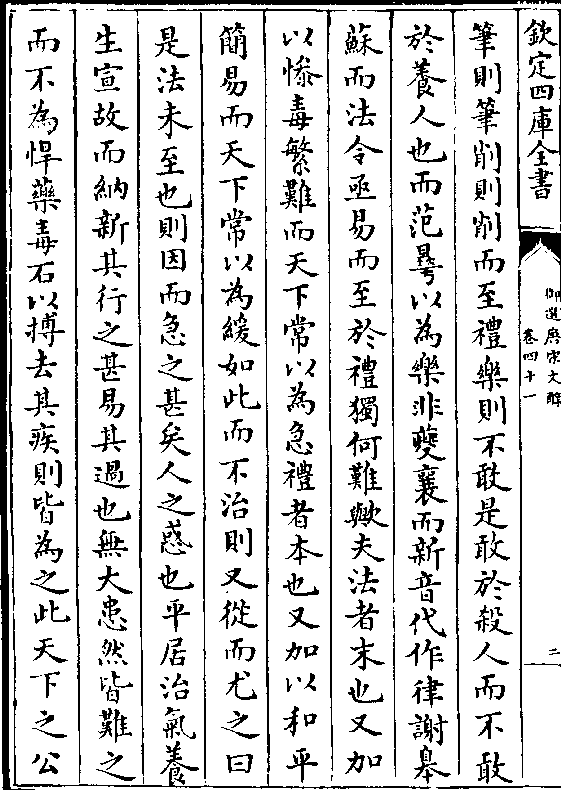 欽定四庫全書
御選唐宋文醇
卷四十一
二
筆則筆削則削而至禮樂則不敢是敢於殺人而不敢
於養人也而范曅以為樂非夔襄而新音代作律謝皋
蘇而法令亟易而至於禮獨何難歟夫法者末也又加
以慘毒繁難而天下常以為急禮者本也又加以和平
簡易而天下常以為緩如此而不治則又從而尤之曰
是法未至也則因而急之甚矣人之惑也平居治氣養
生宣故而納新其行之甚易其過也無大患然皆難之
而不為悍藥毒石以搏去其疾則皆為之此天下之公